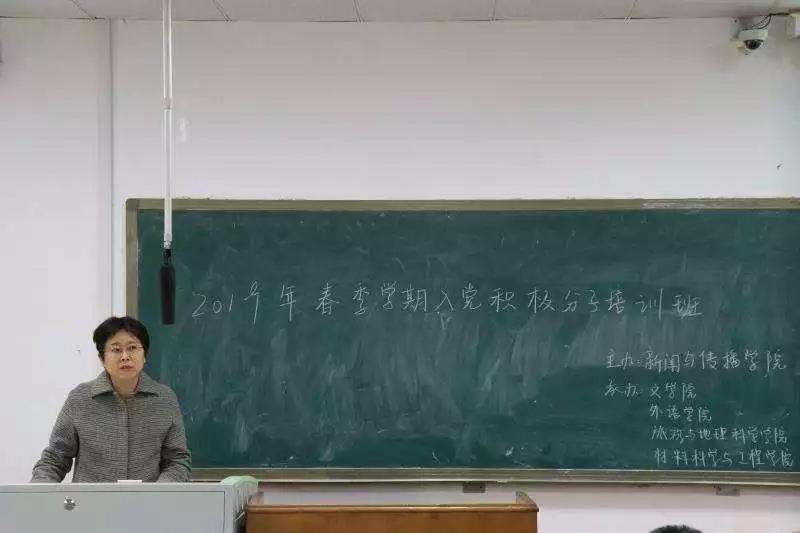 2019年春季学期入党积极分子培训班
主办:新闻与传播学院
承办:文学院
外语学院
旅游与地理科学学院
材料科学与工程学院